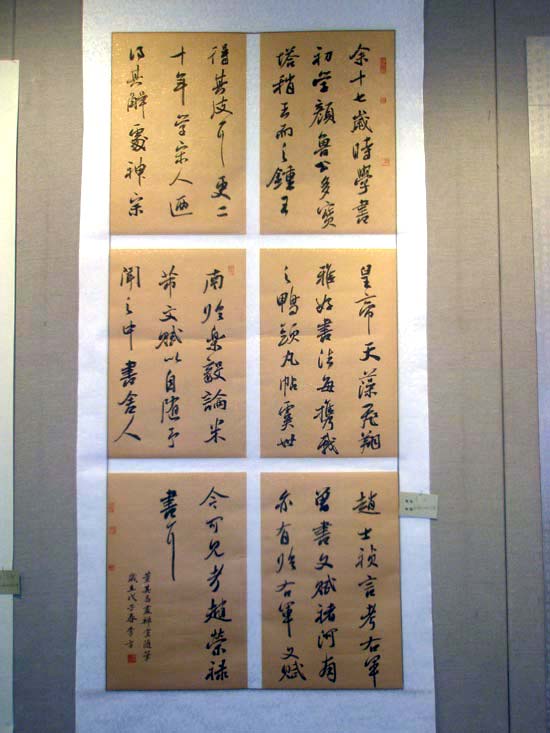 余十七歲時學書
初学顏魯公多寳
塔稍去而之鍾王
得其皮耳更二
十年學宋人迺
得其解處神宗
皇帝天藻飛翔
雅好書法每携献
之鴨頭丸帖虞世
南臨樂毅論米
芾文賦以自隨予
聞之中書舍人
趙士禎言考右軍
曾書文賦褚河南
亦有臨右軍文賦
今可見者趙榮禄
書耳
董其昌畫禪室随筆
歲在戊子春李方